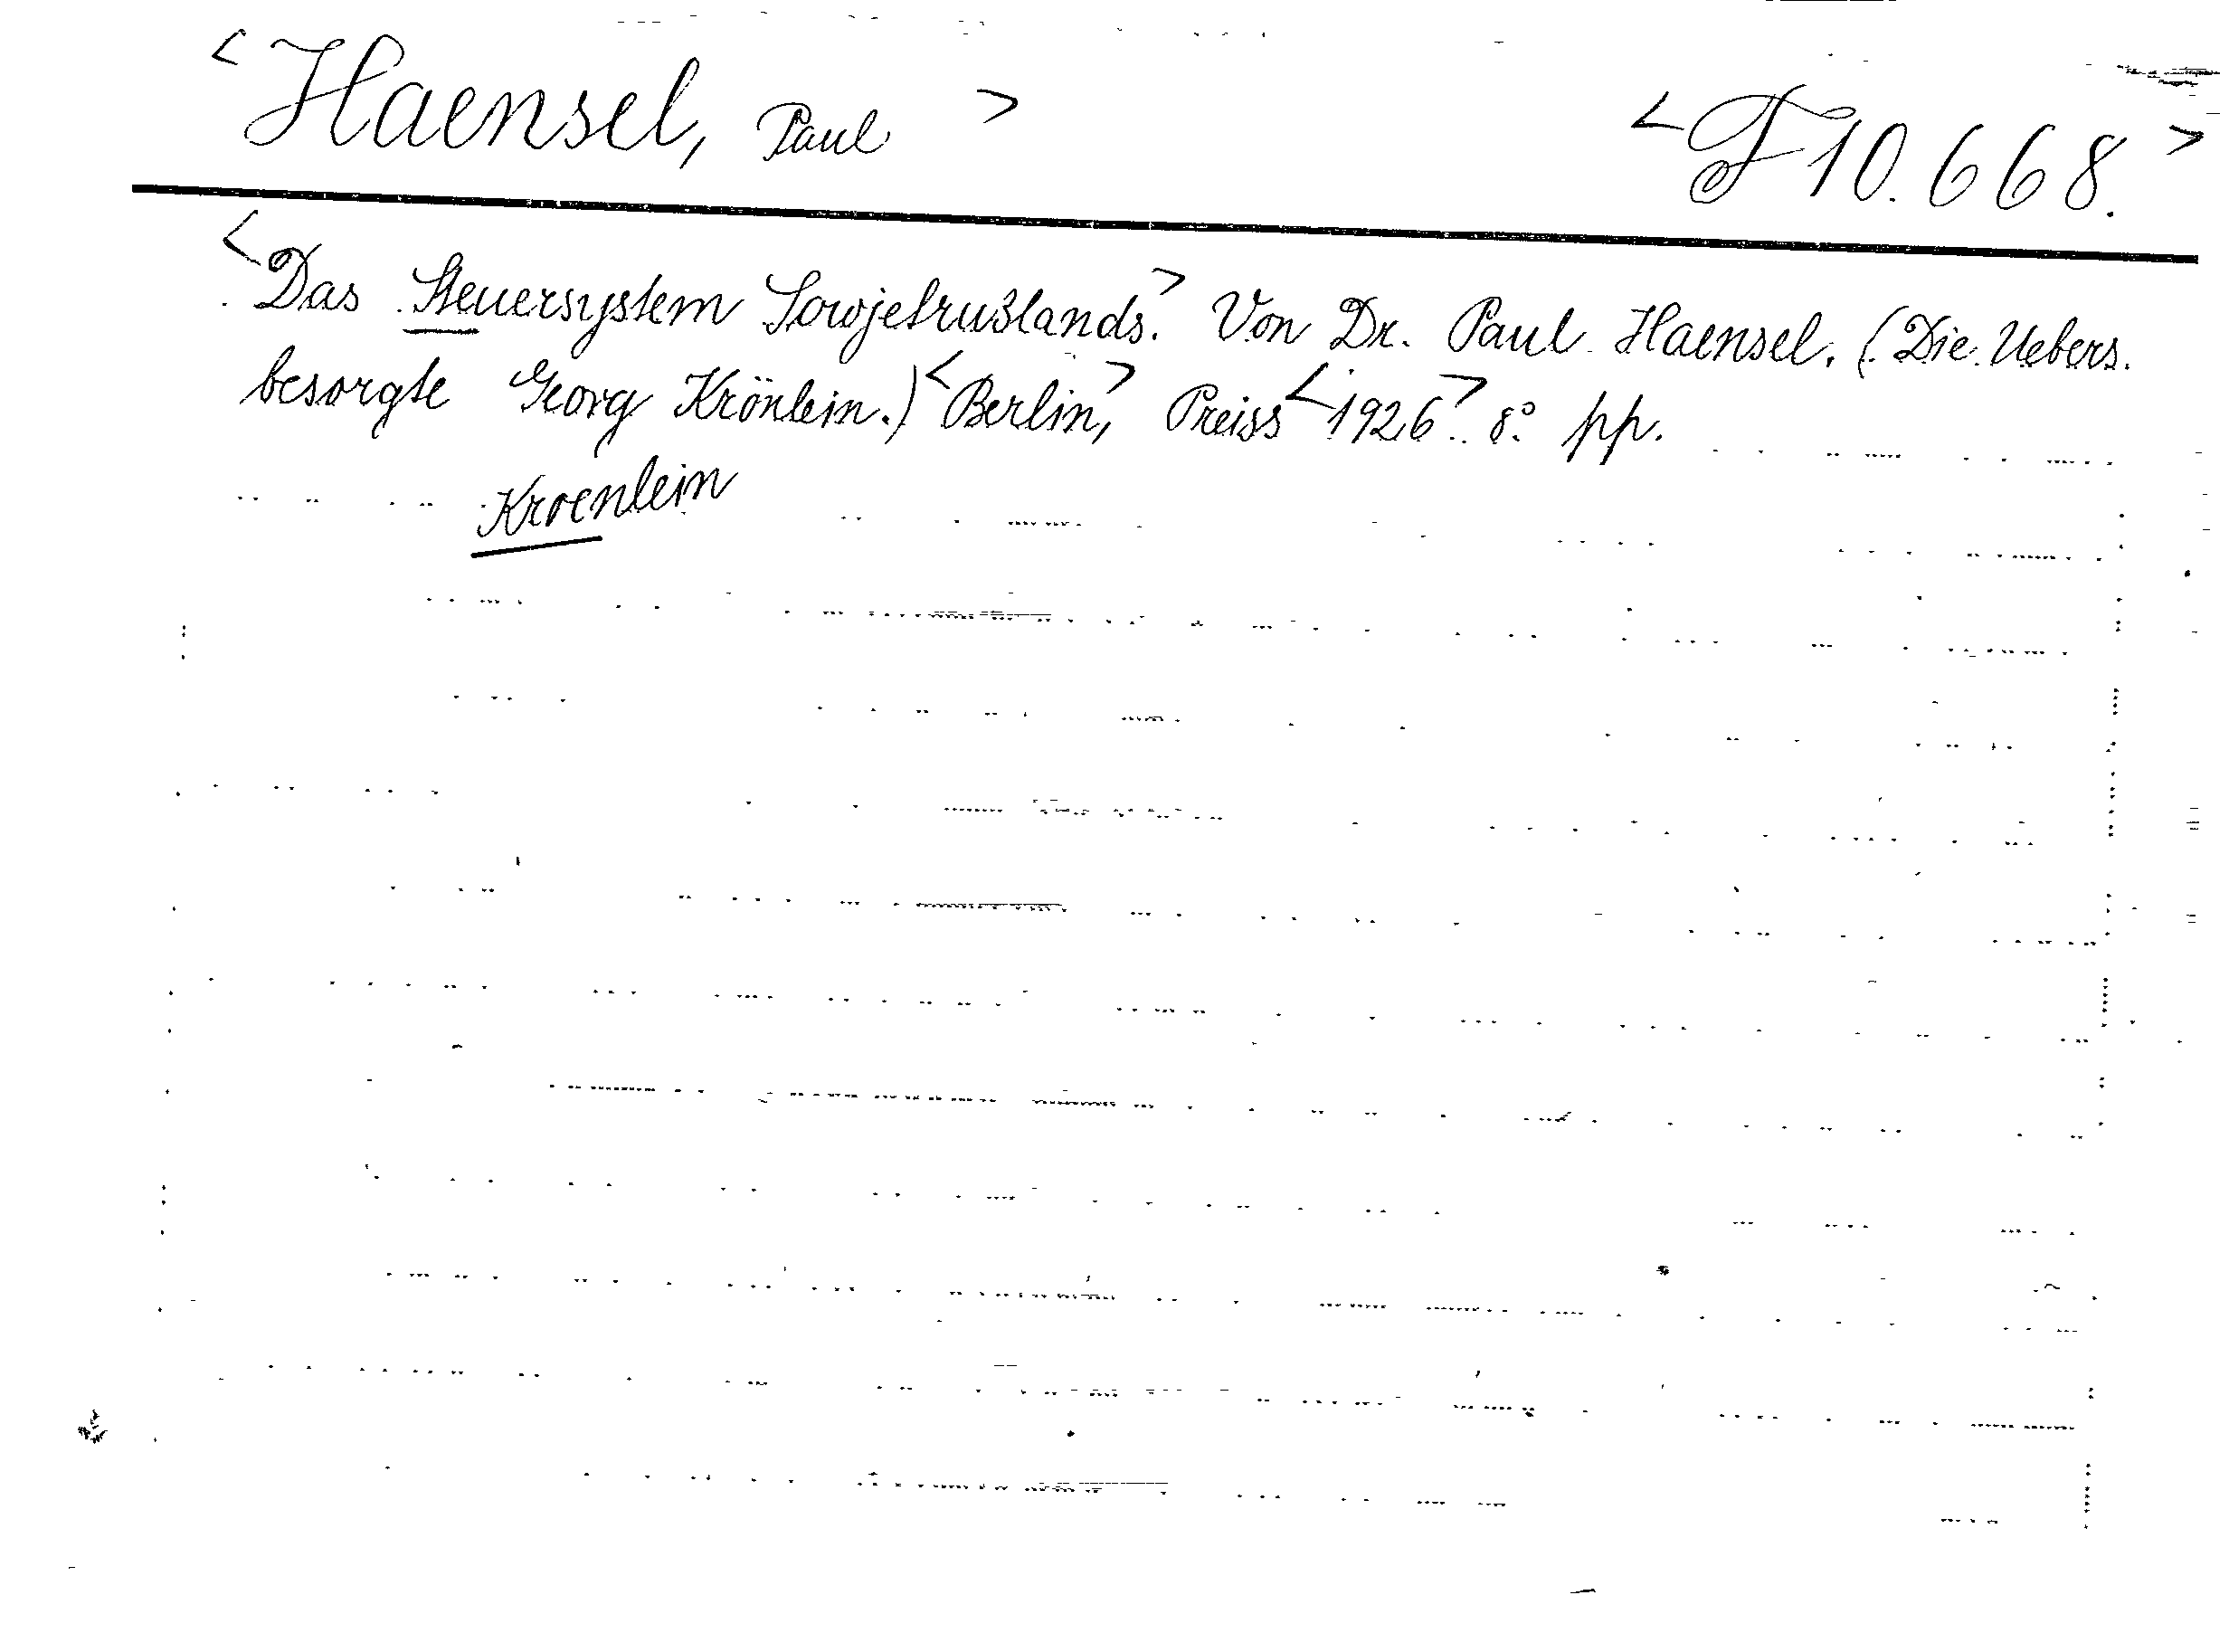 <Haensel, Paul> <F 10.668.>
<Das Steuersystem Sowjetrußlands.> Von Dr. Paul Haensel. (Die Uebers.
besorgte Georg Krönlein.) <Berlin,> Preiss <1926.> 8° pp.
Kroenlein